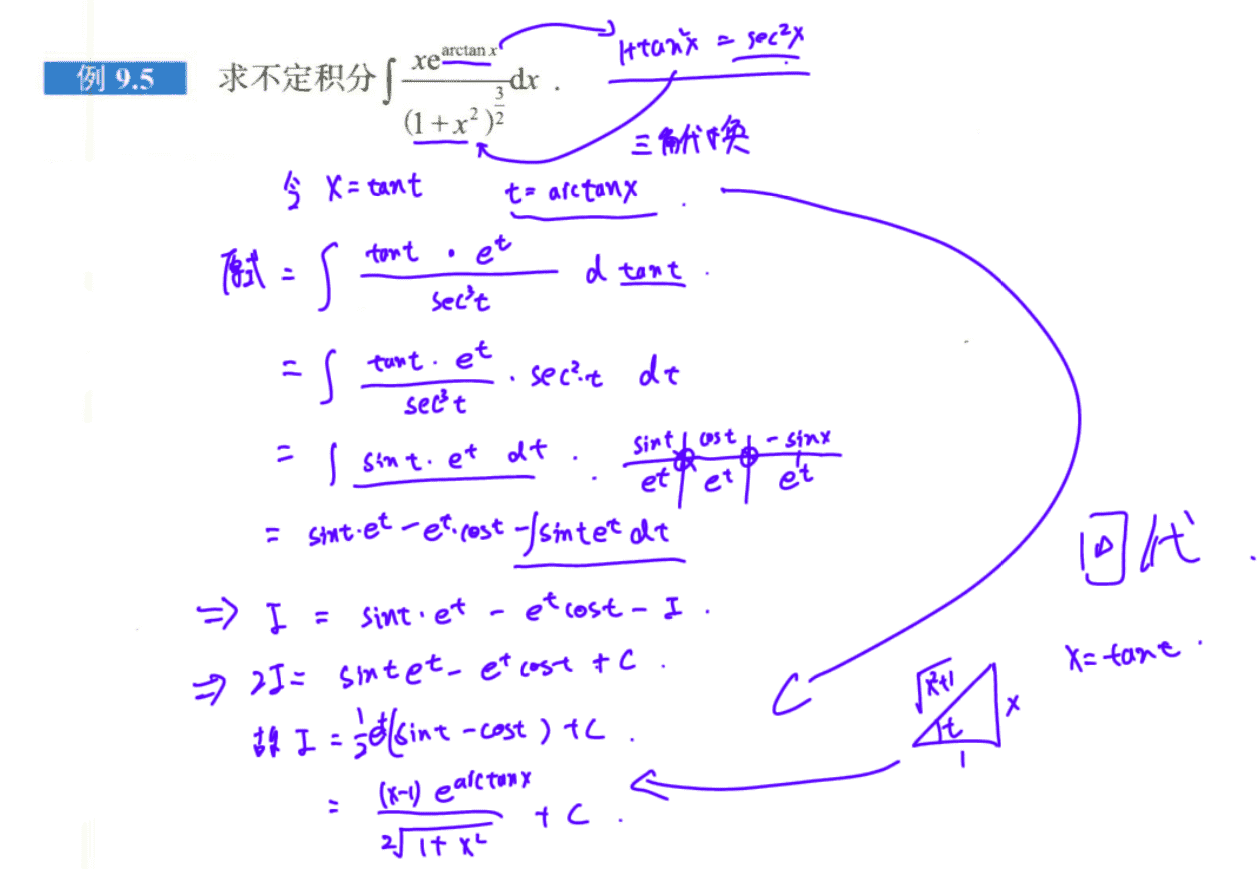 例 9.5 求不定积分∫ xe^{arctan x} / (1+x²)^{3/2} dx .
1+tan²x = sec²x
三角代换
令 x=tant t=arctanx .
原式 = ∫ tant · e^t / sec³t d tant .
= ∫ tant · e^t / sec³t · sec²t dt
= ∫ sint · e^t dt .
sint | cost | -sinx
e^t | e^t | e^t
= sint·e^t - e^t·cost - ∫sinte^t dt
⇒ I = sint·e^t - e^t cost - I .
⇒ 2I = sinte^t - e^t cost + C .
故 I = 1/2 e^t(sint - cost) + C .
= (x-1) e^{arctanx} / 2√(1+x²) + C .
回代 .
x=tant .
√(x²+1)
x
t
1